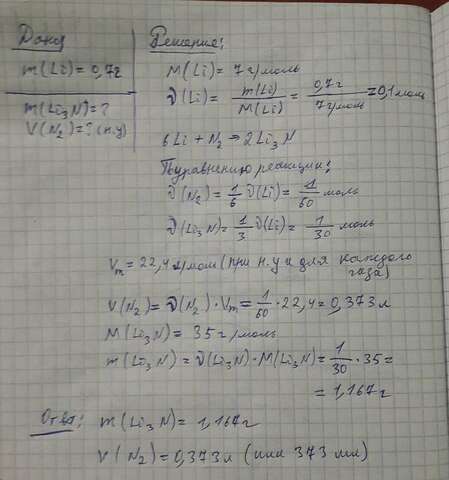 Дано
m(Li) = 0,7г
m(Li₃N) = ?
V(N₂) = ? (н.у)
Решение:
M(Li) = 7 г/моль
ν(Li) = m(Li)/M(Li) = 0,7г/7г/моль = 0,1 моль
6Li + N₂ → 2Li₃N
По уравнению реакции:
ν(N₂) = 1/6 ν(Li) = 1/60 моль
ν(Li₃N) = 1/3 ν(Li) = 1/30 моль
Vm = 22,4 л/моль (при н.у и для каждого
газа)
V(N₂) = ν(N₂) · Vm = 1/60 · 22,4 = 0,373 л
M(Li₃N) = 35 г/моль
m(Li₃N) = ν(Li₃N) · M(Li₃N) = 1/30 · 35 =
= 1,167 г
Ответ: m(Li₃N) = 1,167 г
V(N₂) = 0,373 л (или 373 мл)